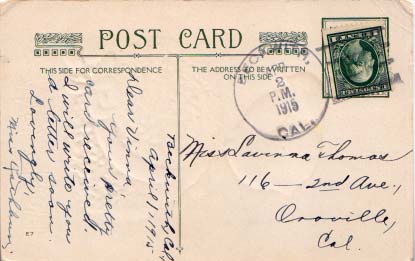 POST CARD
THIS SIDE FOR CORRESPONDENCE
THE ADDRESS TO BE WRITTEN
ON THIS SIDE
APR
2
P.M.
1915
CAL.
Beckwith, Cal,
April 1, 1915
Dear Vinna,
Your pretty
card received.
I will write you
a letter soon.
Lovingly,
Miss
Miss Lavinna Thomas
116—2nd Ave,
Oroville,
Cal.
E7